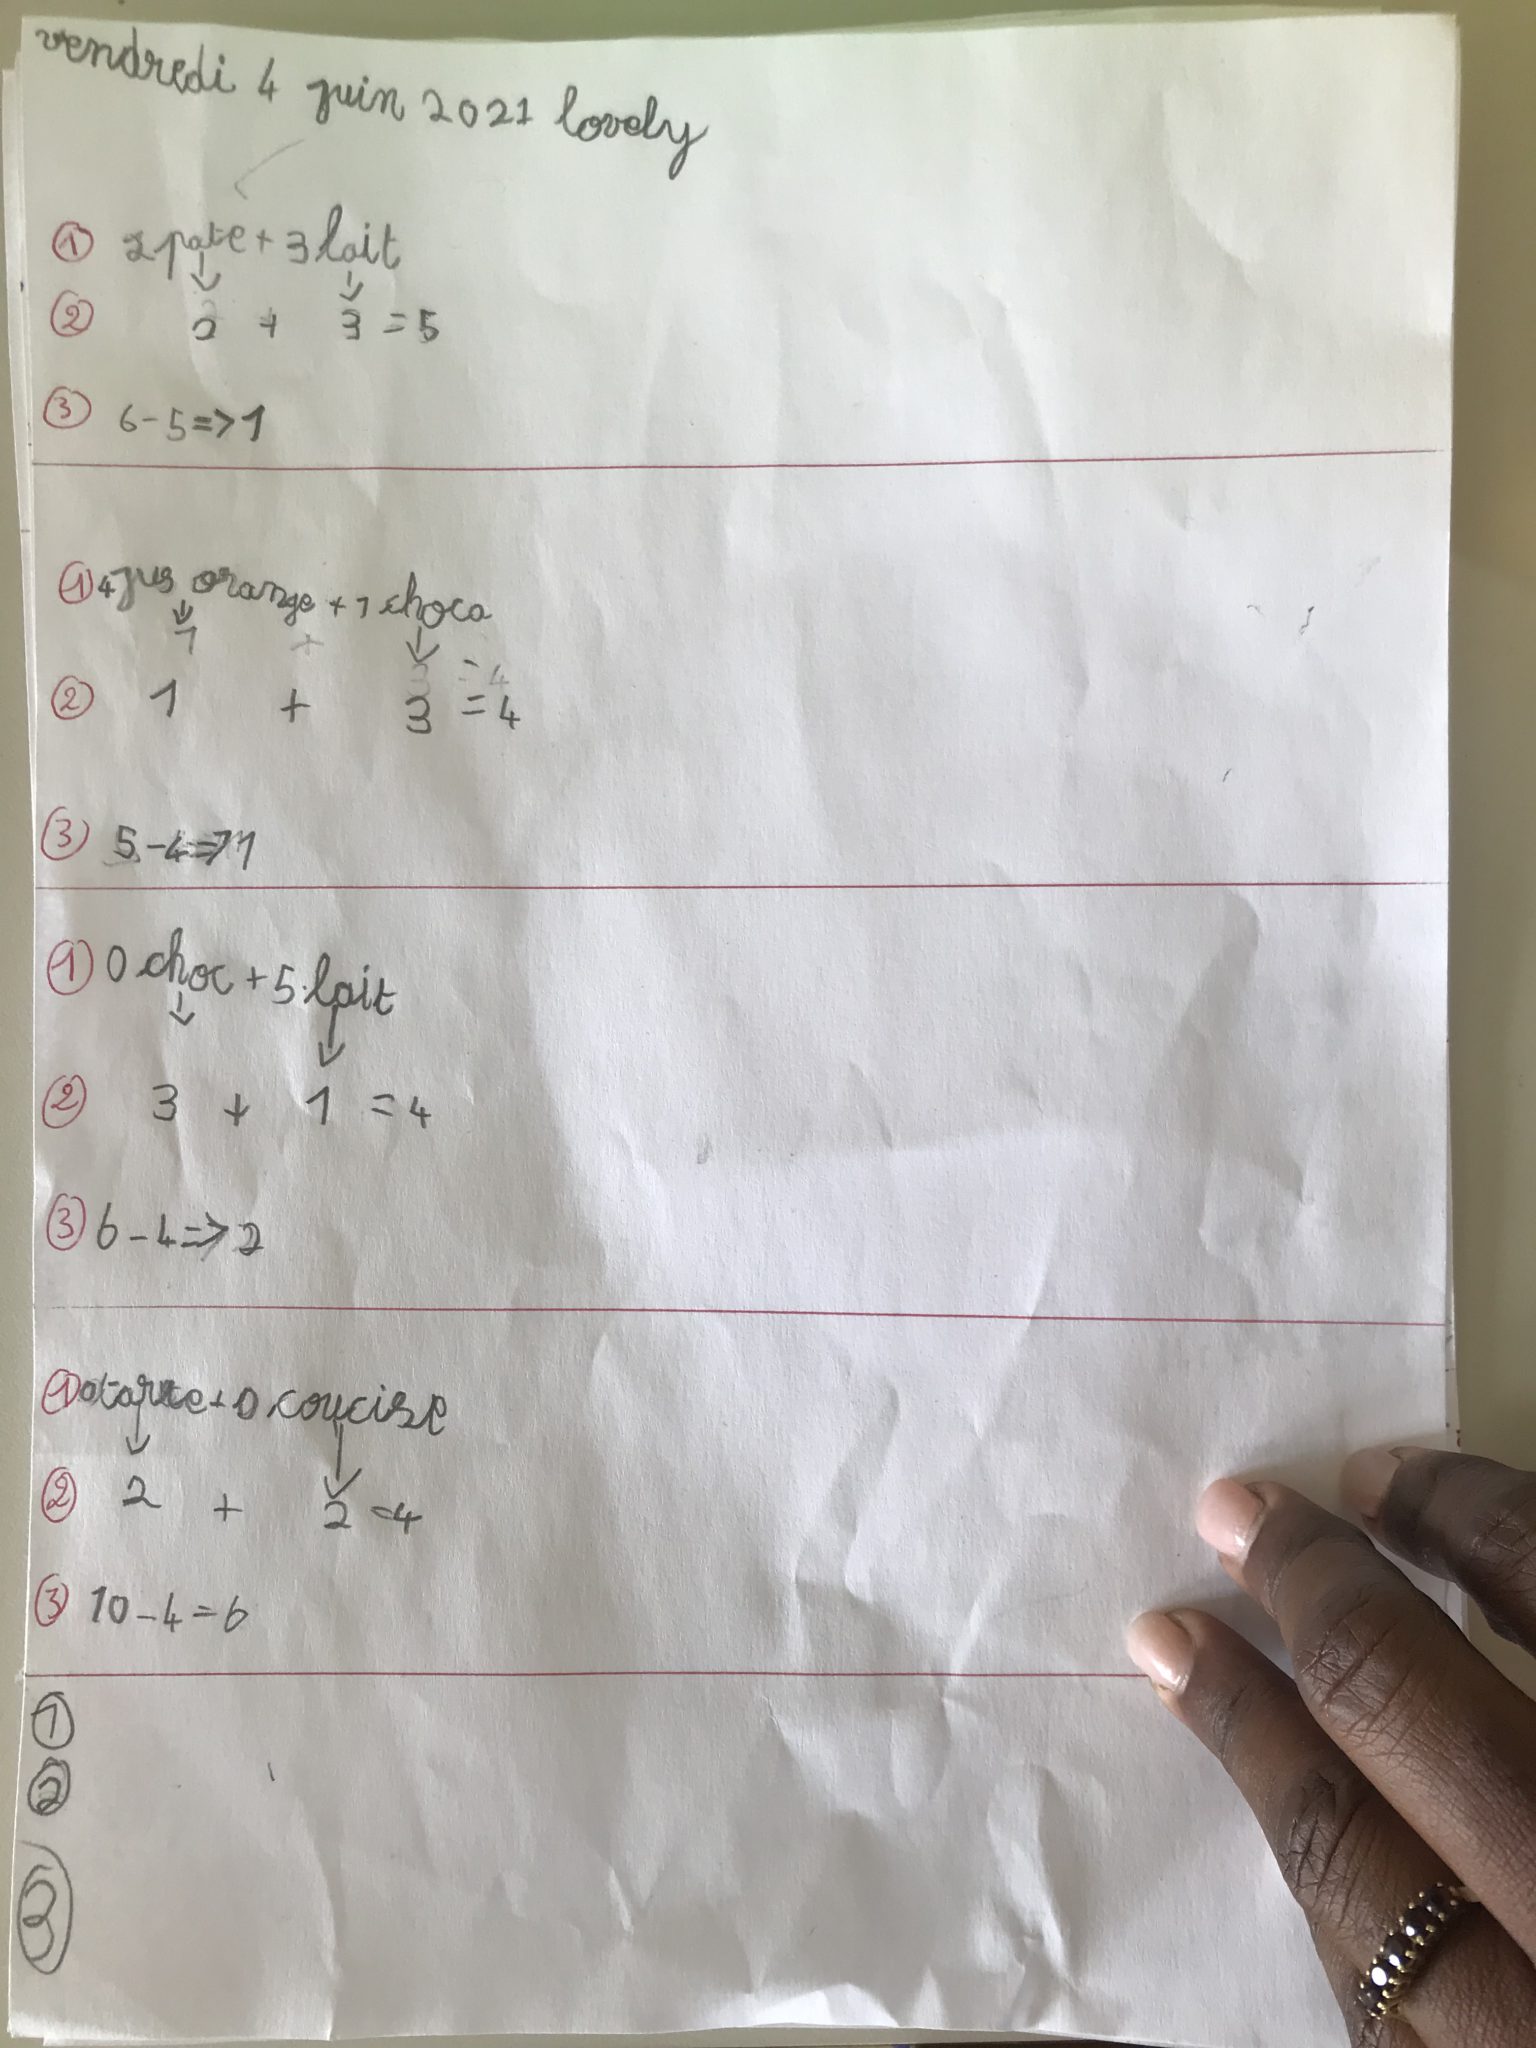 vendredi 4 juin 2021 lovely
① 2 pate + 3 lait
② 2 + 3 = 5
③ 6 - 5 => 1
① 4 jus orange + 1 choco
1 + 3 = 4
② 1 + 3 = 4
③ 5 - 4 => 1
① 0 choc + 5 lait
② 3 + 1 = 4
③ 6 - 4 => 2
① 0 + 0
② 2 + 2 = 4
③ 10 - 4 = 6
①
②
③